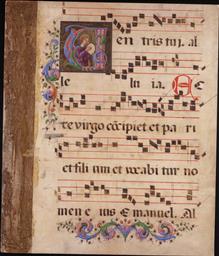 Ven tris tui. al
le lu ia. Ec
ce virgo cōcipiet et pa ri
et fili um et vocabi tur no
men e ius Emanuel. Al